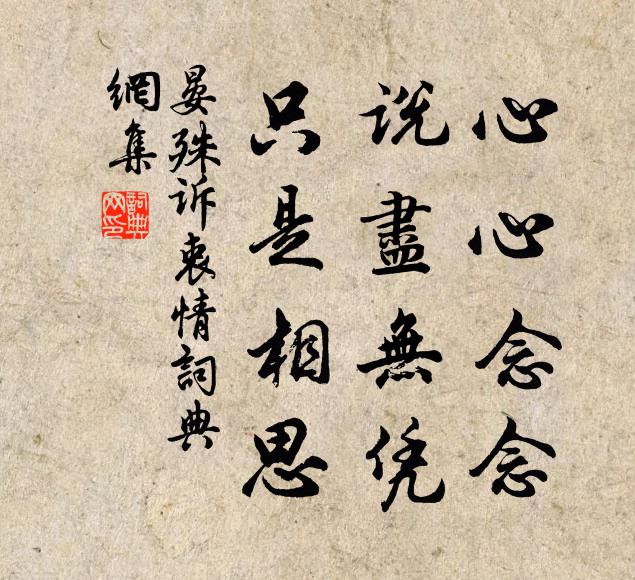 心心念念
说盡無凭
只是相思
晏殊诉衷情詞典
網集
詞典
网印